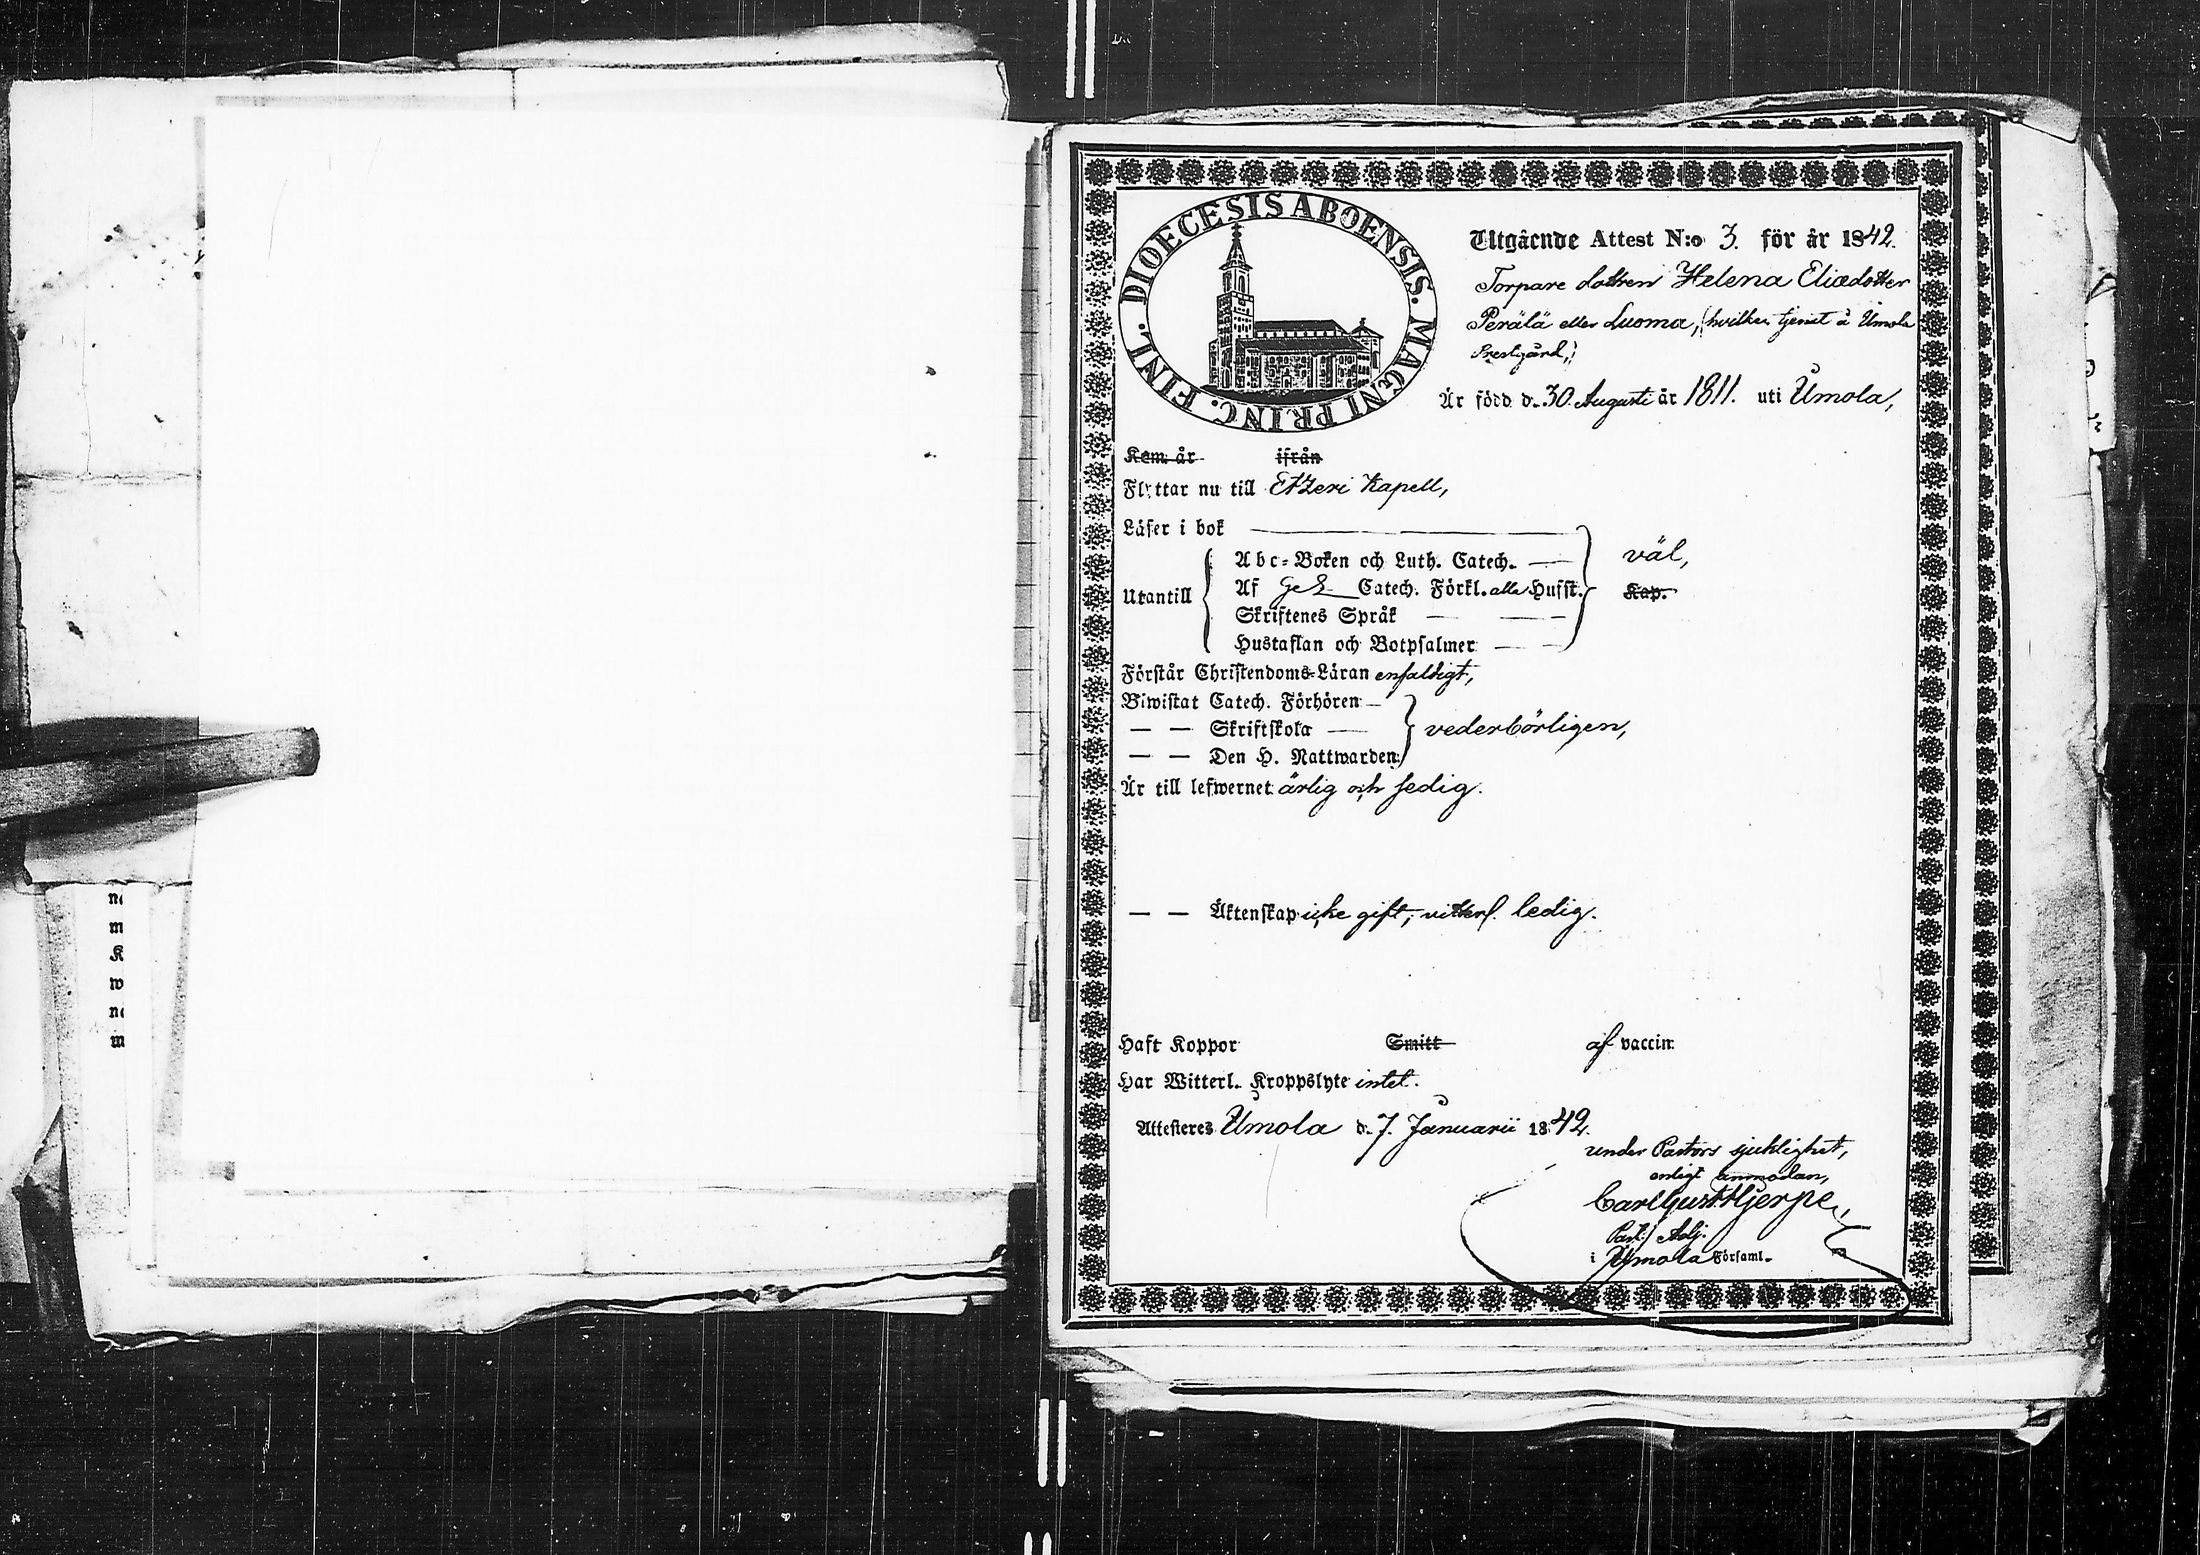 DIOECESIS ABOENSIS. MAGNI PRINC. FINL.
Utgående Attest N:o 3. för år 1842.
Torpare dottren Helena Eliædotter
Perälä eller Luoma, (hvilken tjenst å Umola
Prestgård,)
Är född d. 30. Augusti år 1811. uti Umola,
Kom. år ifrån
Flyttar nu till Etzeri Kapell,
Läser i bok
Abc-Boken och Luth. Catech. väl,
Utantill Af Catech. Förkl. alla Hufst. Kap.
Skriftenes Språk
Hustaflan och Botpsalmer
Förstår Christendoms-Läran enfaldigt,
Biwistat Catech. Förhören
— — Skriftskola — vederbörligen,
— — Den H. Nattwarden
Är till lefwernet ärlig och sedig.
— — Äktenskap icke gift, vitterl. ledig.
Haft Koppor Smitt af vaccin
Har Witterl. Kroppslyte intet.
Attesteres Umola d. 7. Januarii 1842.
under Pastors sjuklighet,
enligt anmodan,
Carl Gust. Hjerpe,
Past. Adj.
i Umola Församl.
n
m
K
w
n
m